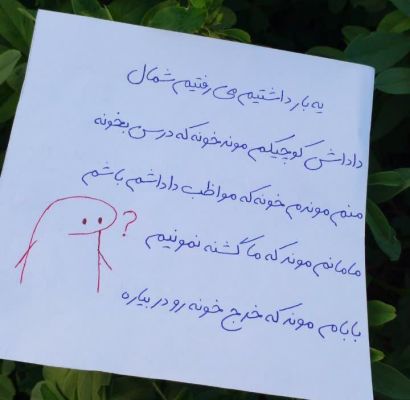 یه بار داشتیم می رفتیم شمال
داداش کوچیکم موند خونه که درس بخونه
منم موندم خونه که مواظب داداشم باشم
مامانم موند که ما گشنه نمونیم
بابام موند که خرج خونه رو در بیاره
?